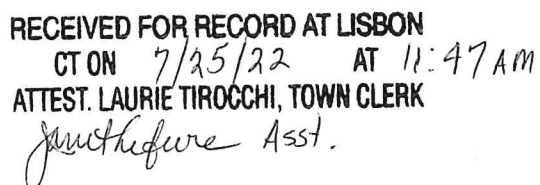 RECEIVED FOR RECORD AT LISBON
CT ON 7/25/22 AT 11:47 AM
ATTEST. LAURIE TIROCCHI, TOWN CLERK
Asst.